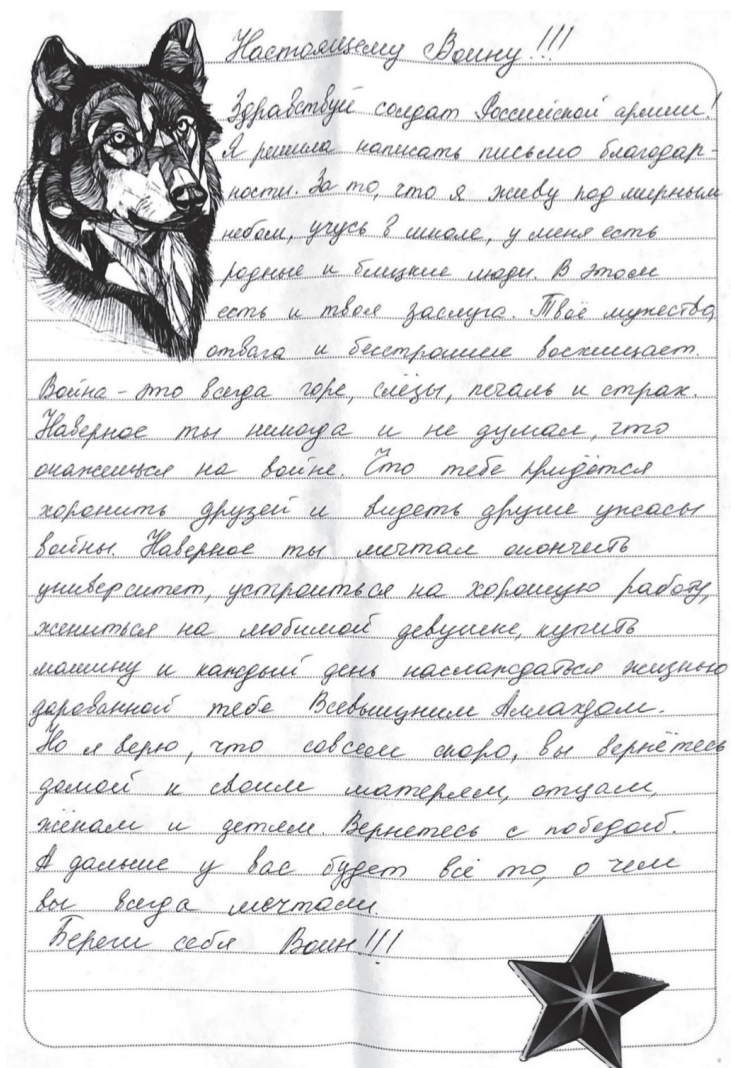 Настоящему Воину!!!
Здравствуй солдат Российской армии!
Я решила написать письмо благодар-
ности. За то, что я живу под мирным
небом, учусь в школе, у меня есть
родные и близкие люди. В этом
есть и твоя заслуга. Твоё мужество,
отвага и бесстрашие восхищает.
Война – это всегда горе, слёзы, печаль и страх.
Наверное ты никогда и не думал, что
окажешься на войне. Что тебе придётся
хоронить друзей и видеть другие ужасы
войны. Наверное ты мечтал окончить
университет, устроиться на хорошую работу,
жениться на любимой девушке, купить
машину и каждый день наслаждаться жизнью
дарованной тебе Всевышним Аллахом.
Но я верю, что совсем скоро, вы вернётесь
домой к своим матерям, отцам,
жёнам и детям. Вернетесь с победой.
А дальше у вас будет всё то, о чем
вы всегда мечтали.
Береги себя Воин!!!